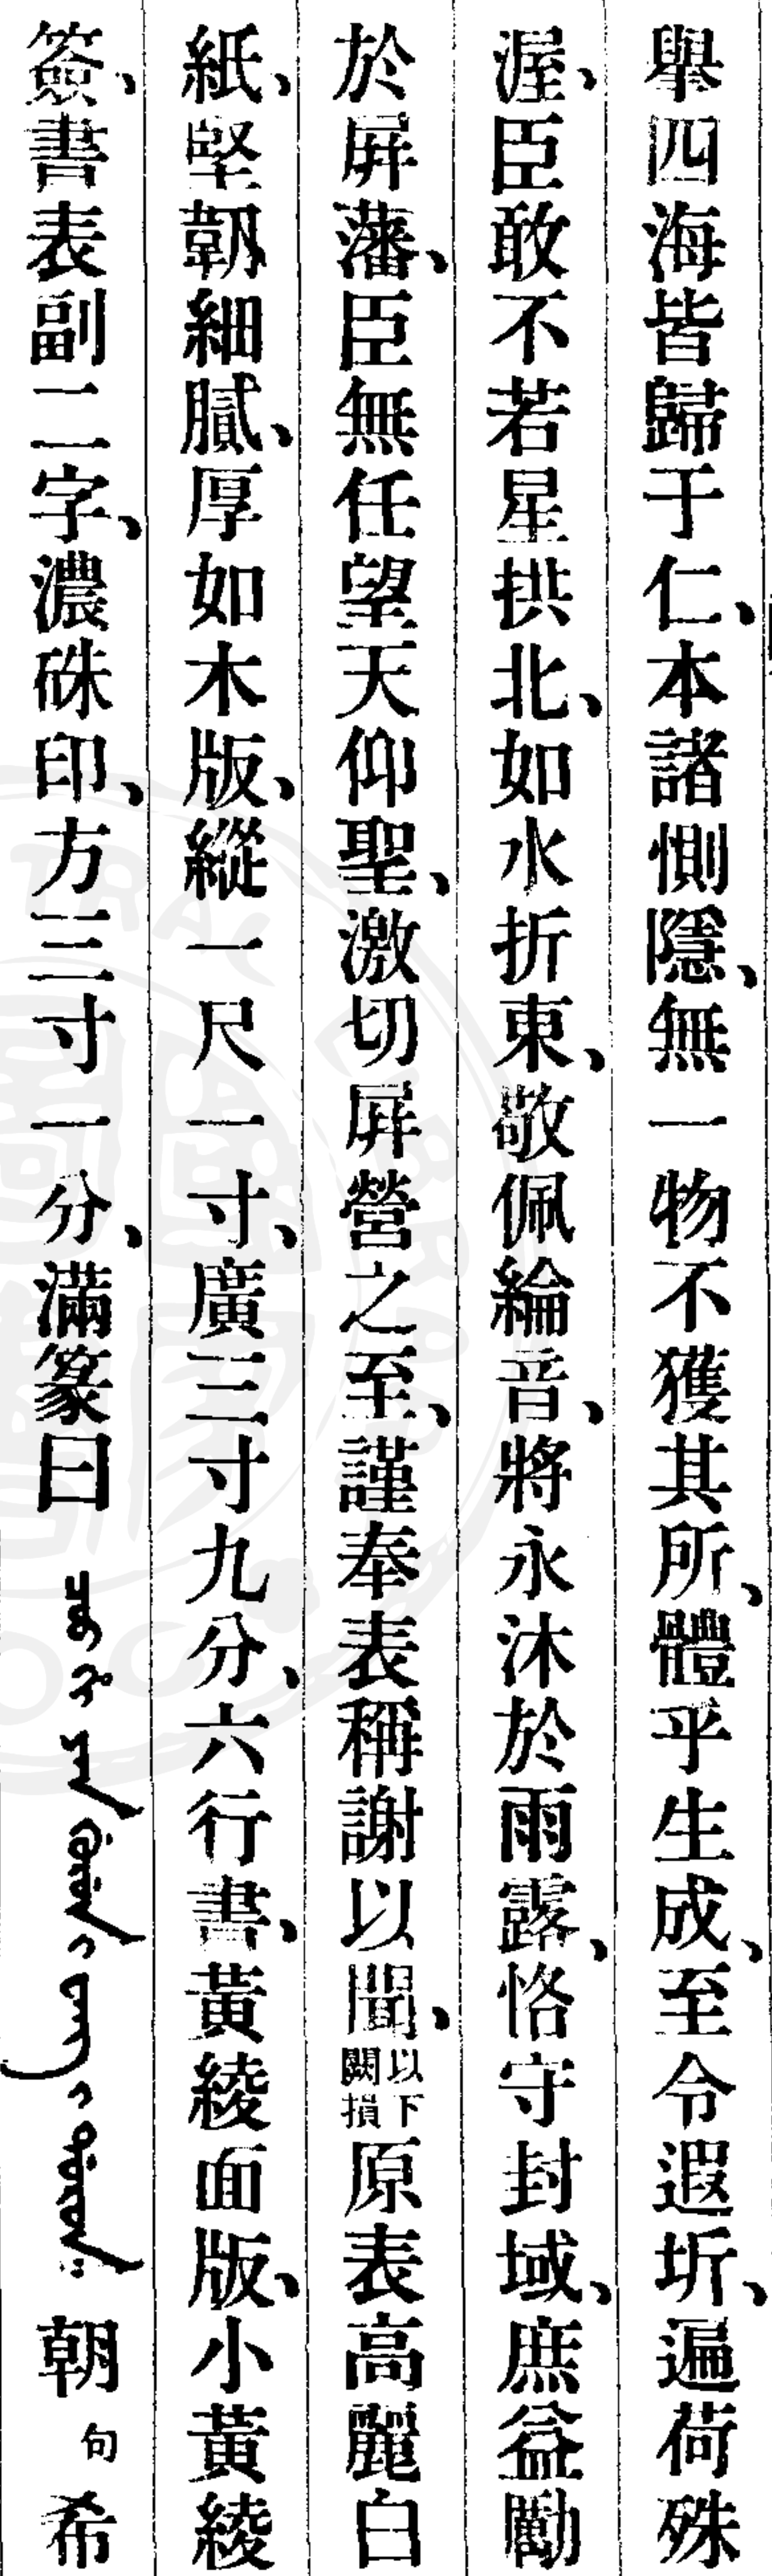 舉四海皆歸于仁、本諸惻隱、無一物不獲其所、體乎生成、至令遐圻、遍荷殊
渥、臣敢不若星拱北、如水折東、敬佩綸音、將永沐於雨露、恪守封域、庶益勵
於屏藩、臣無任望天仰聖、激切屏營之至、謹奉表稱謝以聞、以下闕損原表高麗白
紙、堅韌細膩、厚如木版、縱一尺一寸、廣三寸九分、六行書、黃綾面版、小黃綾
簽、書表副二字、濃硃印、方三寸一分、滿篆曰 朝句希